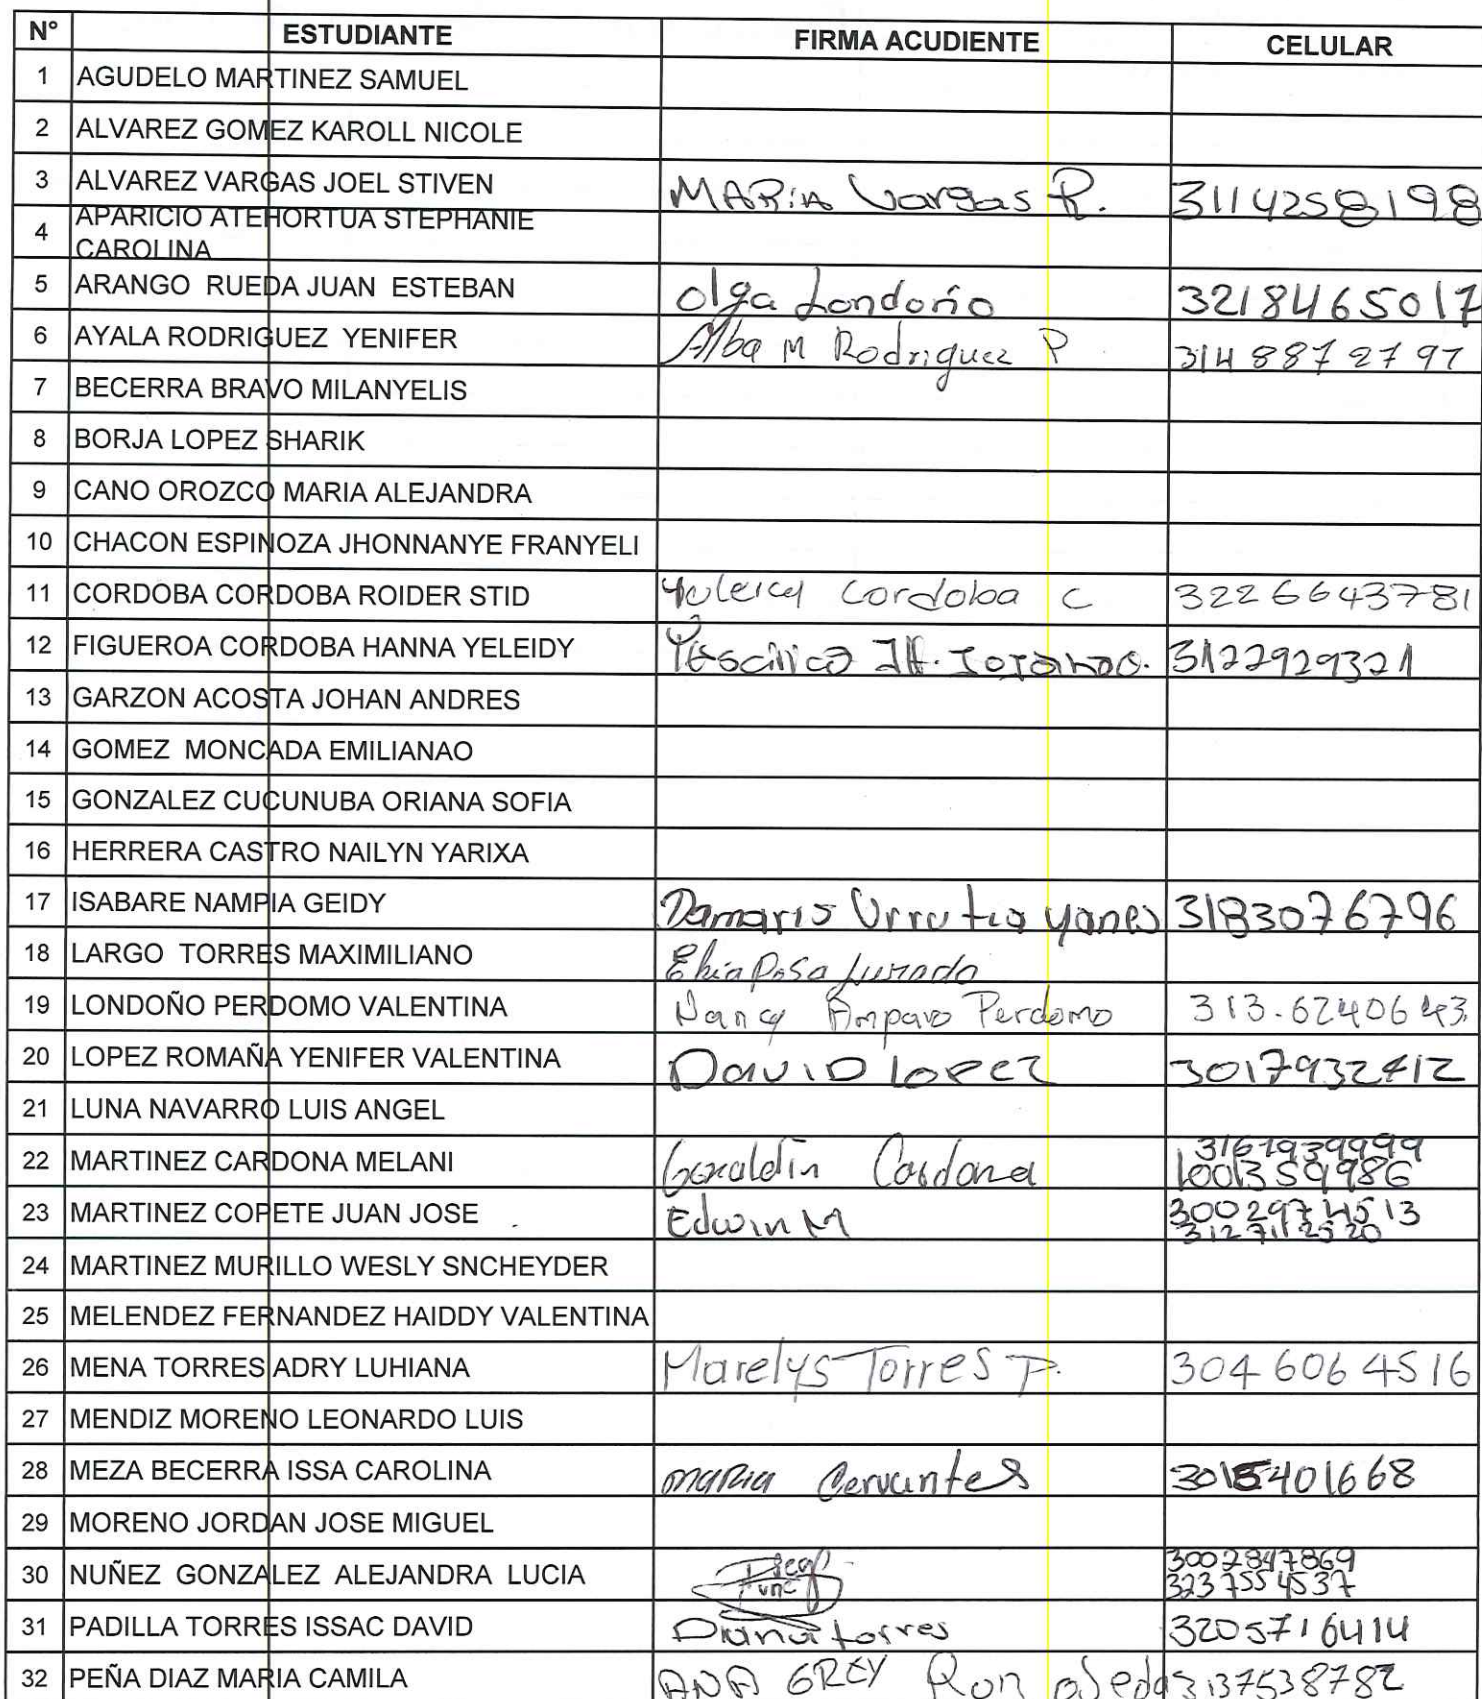 N° ESTUDIANTE FIRMA ACUDIENTE CELULAR
1 AGUDELO MARTINEZ SAMUEL
2 ALVAREZ GOMEZ KAROLL NICOLE
3 ALVAREZ VARGAS JOEL STIVEN MARIA Vargas R. 3114258198
4 APARICIO ATEHORTUA STEPHANIE
CAROLINA
5 ARANGO RUEDA JUAN ESTEBAN Olga Londoño 3218465017
6 AYALA RODRIGUEZ YENIFER Alba M Rodriguez P 3148872797
7 BECERRA BRAVO MILANYELIS
8 BORJA LOPEZ SHARIK
9 CANO OROZCO MARIA ALEJANDRA
10 CHACON ESPINOZA JHONNANYE FRANYELI
11 CORDOBA CORDOBA ROIDER STID Yuleicy Cordoba C 3226643781
12 FIGUEROA CORDOBA HANNA YELEIDY 3122929321
13 GARZON ACOSTA JOHAN ANDRES
14 GOMEZ MONCADA EMILIANAO
15 GONZALEZ CUCUNUBA ORIANA SOFIA
16 HERRERA CASTRO NAILYN YARIXA
17 ISABARE NAMPIA GEIDY Damaris Urrutia yanes 3183076796
18 LARGO TORRES MAXIMILIANO
19 LONDOÑO PERDOMO VALENTINA Nancy Amparo Perdomo 313.6240643
20 LOPEZ ROMAÑA YENIFER VALENTINA DAVID LOPEZ 3017932412
21 LUNA NAVARRO LUIS ANGEL
22 MARTINEZ CARDONA MELANI Geraldin Cardona 3167939999
1001359986
23 MARTINEZ COPETE JUAN JOSE Edwin M 3002974513
3127112520
24 MARTINEZ MURILLO WESLY SNCHEYDER
25 MELENDEZ FERNANDEZ HAIDDY VALENTINA
26 MENA TORRES ADRY LUHIANA Marelys Torres P. 304 606 4516
27 MENDIZ MORENO LEONARDO LUIS
28 MEZA BECERRA ISSA CAROLINA maria Cervantes 3015401668
29 MORENO JORDAN JOSE MIGUEL
30 NUÑEZ GONZALEZ ALEJANDRA LUCIA 3002847869
323 755 4537
31 PADILLA TORRES ISSAC DAVID Diana torres 3205716414
32 PEÑA DIAZ MARIA CAMILA ANA GREY Ron ojeda 3137538782